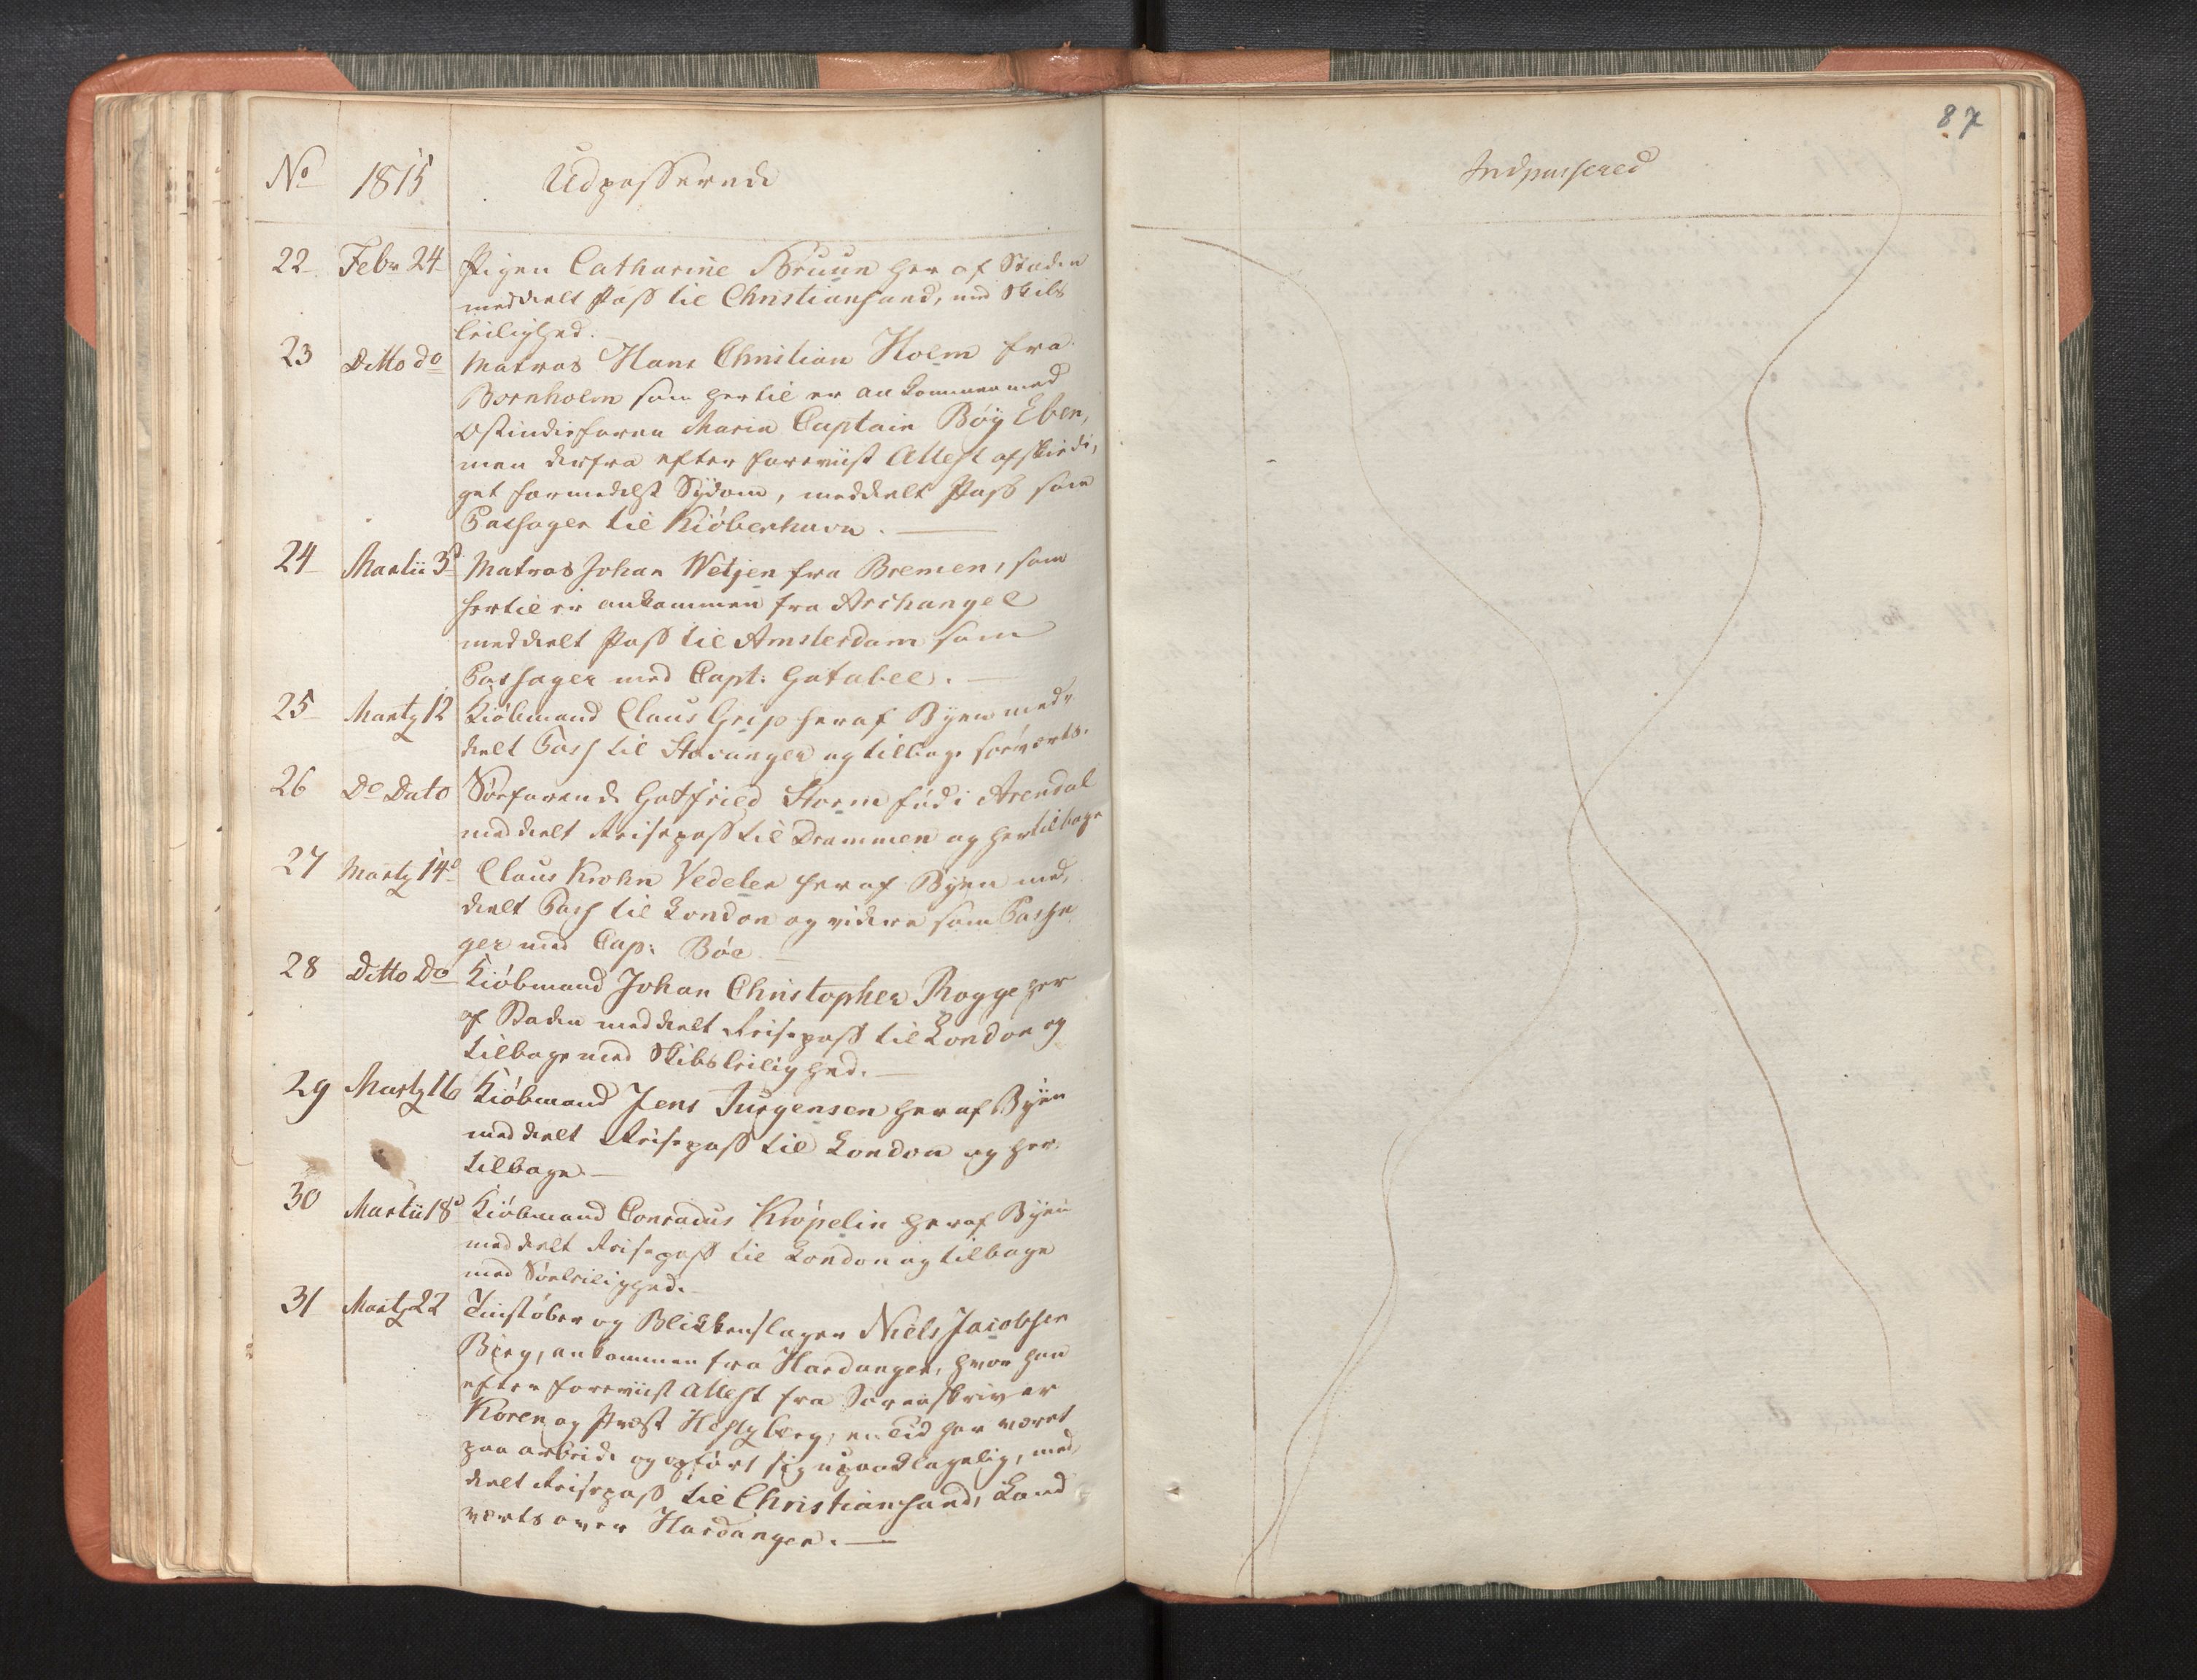 No 1815 Udpasserede
22 Febr 24 Pigen Catharine Bruun her af Staden
meddeelt Pass til Christiansand, med Skibs
leilighed.
23 Ditto do Matros Hans Christian Holm fra
Bornholm som hertil er ankommen med
Ostindiefaren Maria Captain Böy Eben,
men derfra efter foreviist Attest afskiedi,
get formedelst Sÿdom, meddeelt Pass som
Passager til Kiöbenhavn.
24 Martii 3d Matros Johan Wetjen fra Bremen, som
hertil er ankommen fra Archangel
meddeelt Pass til Amsterdam som
Passager med Capt: Gatabel.
25 Martz 12 Kiöbmand Claus Grip her af Byen med,
deelt Pass til Stavanger og tilbage söeværts.
26 De Dato Söefarende Gotfried Storm föd i Arendal
meddeelt Reisepass til Drammen og her tilbage
27 Martz 14d Claus Krohn Vedeler her af Bÿen med,
deelt Pass til London og videre som Passa
ger med Cap: Böe.
28 Ditto Do Kiöbmand Johan Christopher Rogge her
af Staden meddeelt Reisepass til London og
tilbage med Skibsleilighed.
29 Martz 16 Kiöbmand Jens Jurgensen her af Bÿen
meddeelt Reisepass til London og her
tilbage.
30 Martii 18d Kiöbmand Conradus Kröpelin her af Bÿen
meddeelt Reisepass til London og tilbage
med Söeleilighed.
31 Martz 22 Tinstöber og Blikkenslager Niels Jacobsen
Berg, ankommen fra Hardanger, hvor han
efter foreviist Attest fra Sorenskriver
Koren og Præst Hertzberg, en Tid har været
paa arbeide og opfört sig upaaklagelig, med,
deelt Reisepass til Christiansand, Land
værts over Hardanger.
87
Indpassered